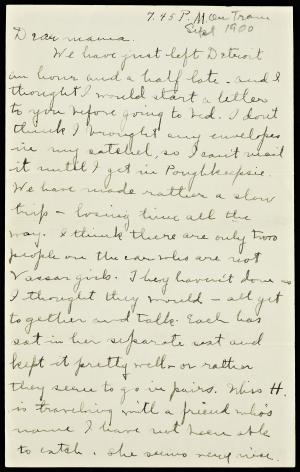 7.45 P.M. On Train
Sept 1900
Dear mama.
We have just left Detroit
an hour and a half late - and I
thought I would start a letter
to you before going to bed. I don't
think I brought any envelopes
in my satchel, so I can't mail
it until I get in Poughkeepsie.
We have made rather a slow
trip - losing time all the
way. I think there are only two
people on the car who are not
Vassar girls. They haven't done as
I thought they would - all get
together and talk. Each has
sat in her separate seat and
kept it pretty well - or rather
they seem to go in pairs. Miss H.
is traveling with a friend who's
name I have not been able
to catch. She seems very nice.